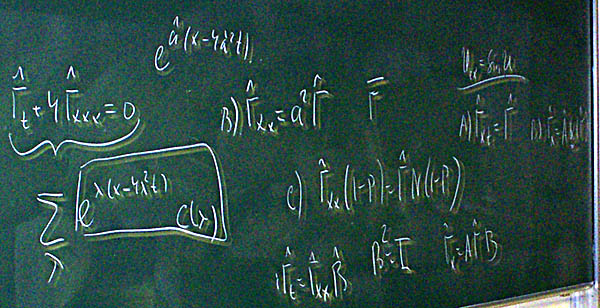 e^{â(x-4â²t)}
Γ̂_t + 4Γ̂_{xxx} = 0
B) Γ̂_{xx} = a²Γ̂
Γ̄
U_{xt} = sin u
A) Γ̂_{xt} = Γ̂
∑_λ e^{λ(x-4λ²t)} C(λ)
C) Γ̂_{xx}(1-P) = Γ̂N(1-P)
Γ̂_t = Γ̂_{xx}B̂
B² = I
Γ̂_x = AΓ̂B